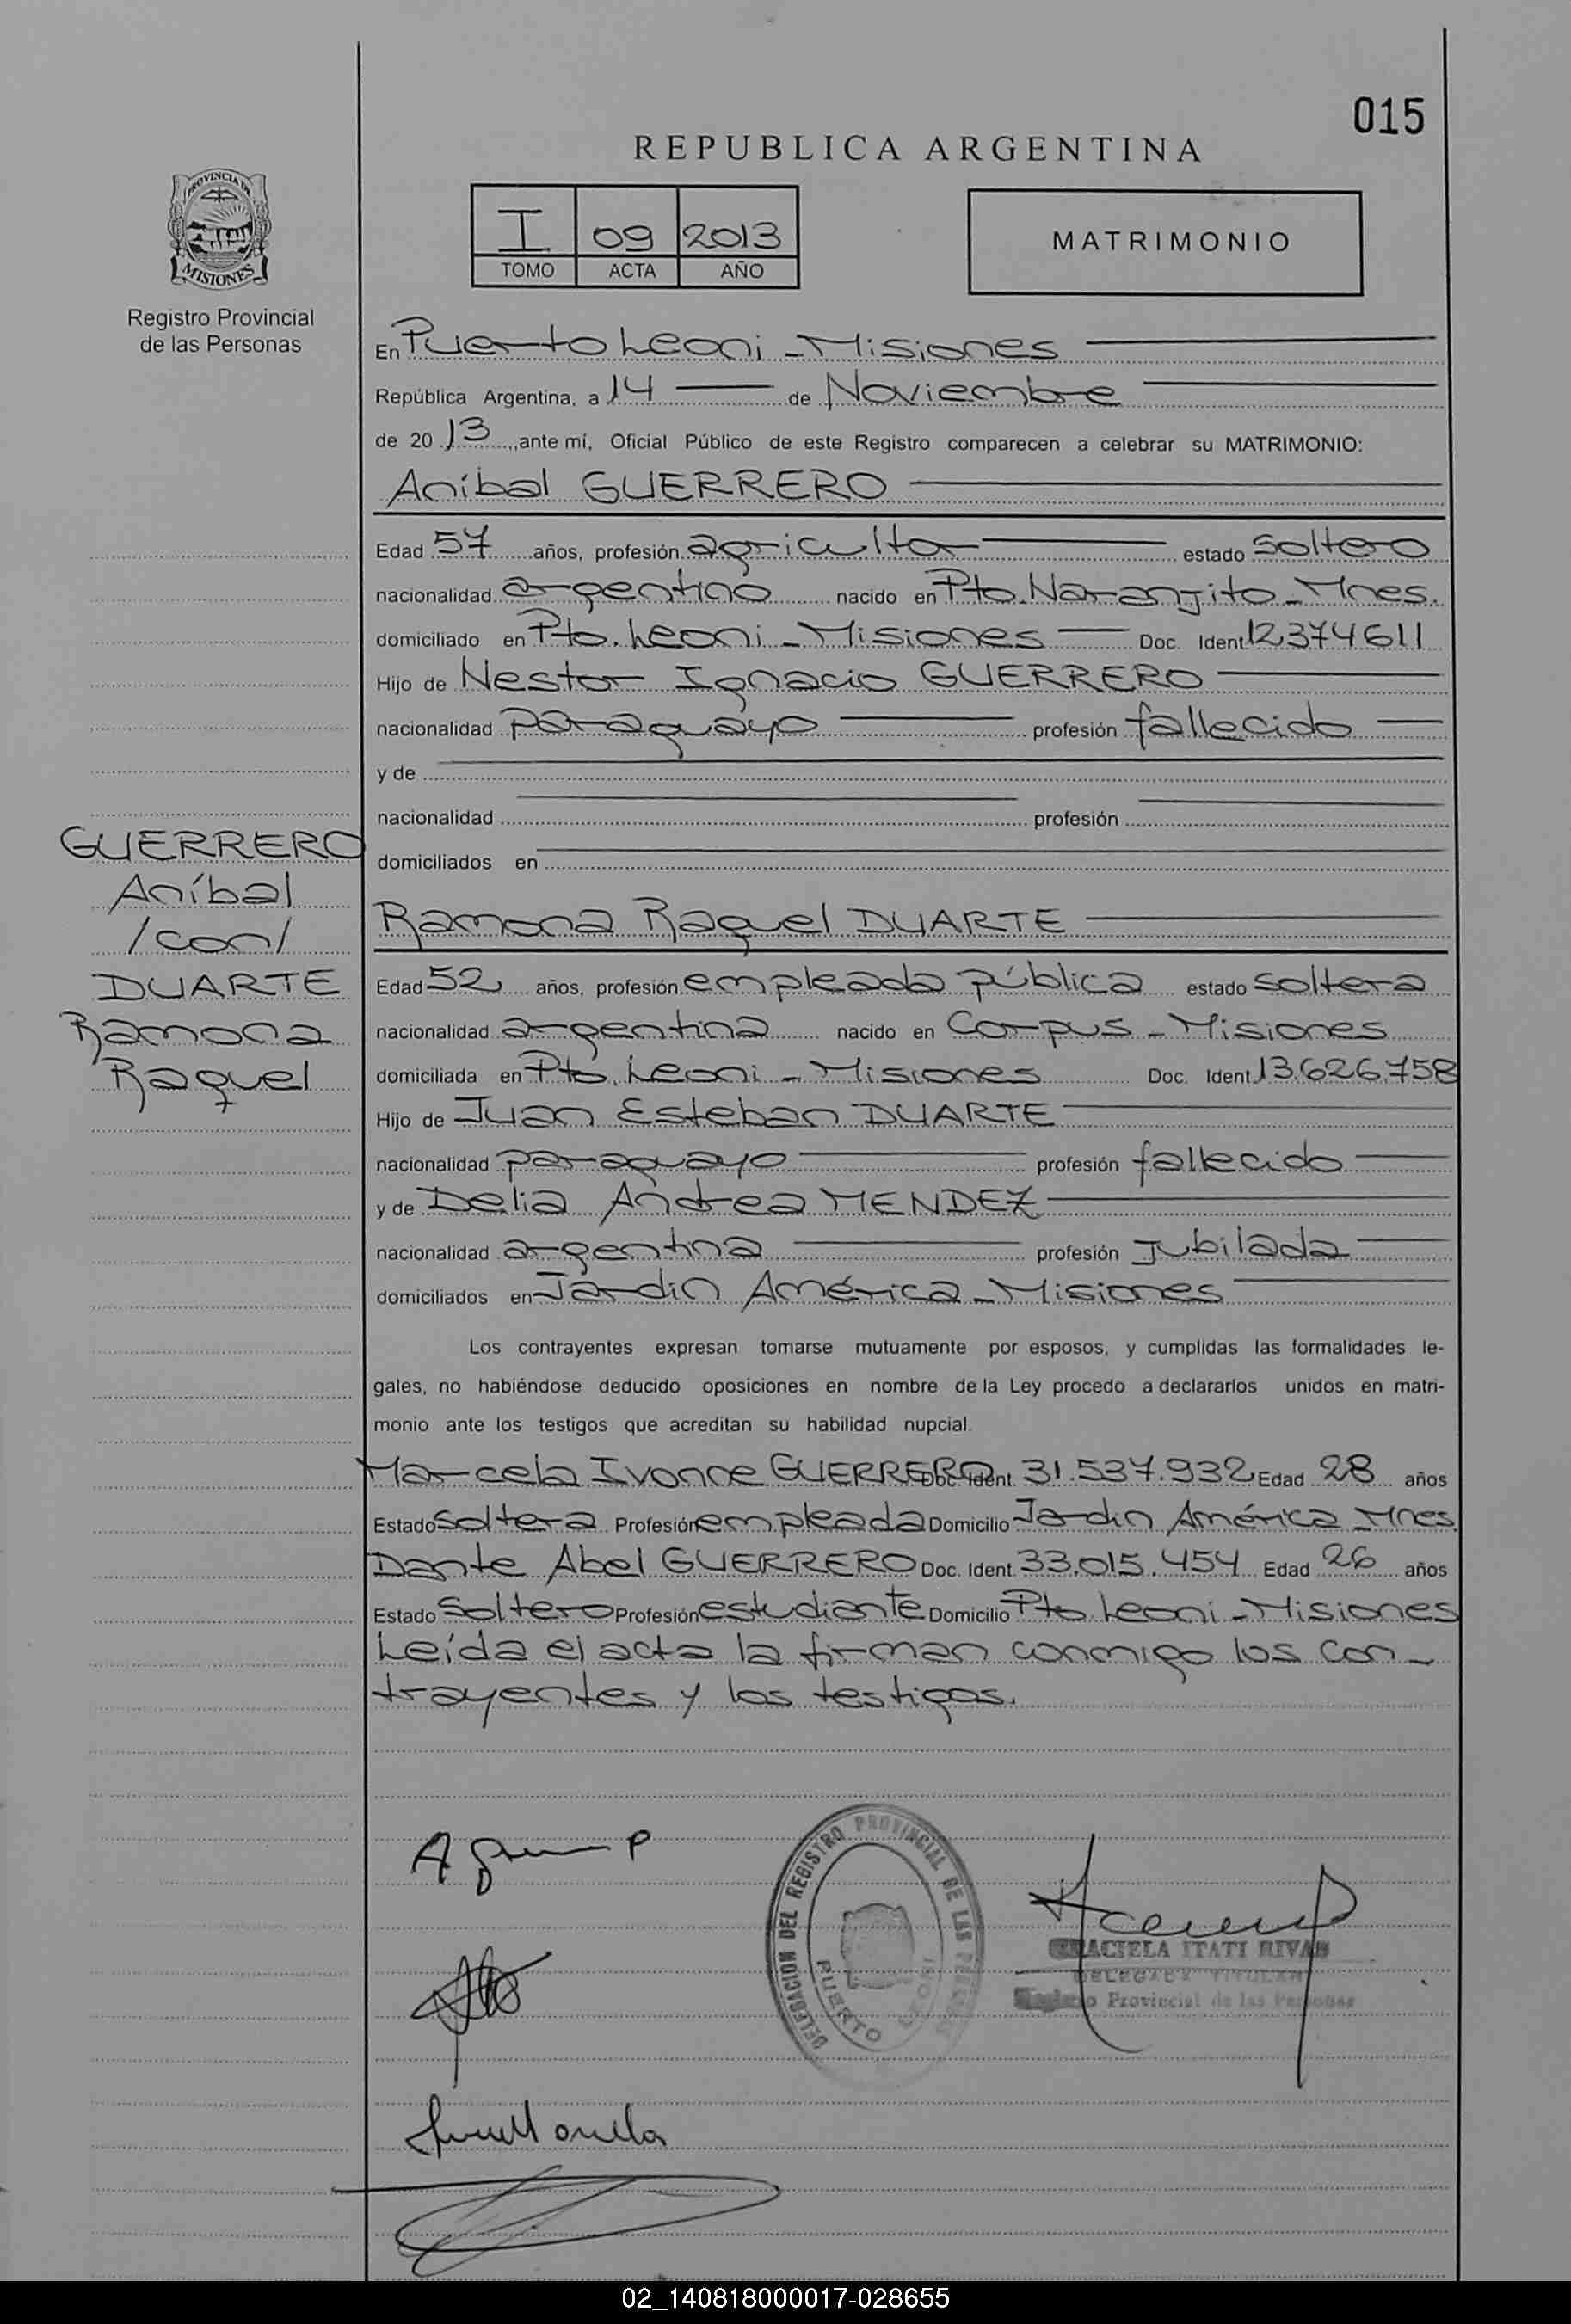 015
REPUBLICA ARGENTINA
PROVINCIA DE
MISIONES
Registro Provincial
de las Personas
I 09 2013
TOMO ACTA AÑO
MATRIMONIO
En Puerto Leoni - Misiones
República Argentina, a 14 de Noviembre
de 20 13, ante mí, Oficial Público de este Registro comparecen a celebrar su MATRIMONIO:
Aníbal GUERRERO
Edad 57 años, profesión agricultor estado soltero
nacionalidad argentino nacido en Pto. Naranjito - Mnes.
domiciliado en Pto. Leoni - Misiones Doc. Ident 12.374.611
Hijo de Nestor Ignacio GUERRERO
nacionalidad paraguayo profesión fallecido
y de
nacionalidad profesión
domiciliados en
GUERRERO
Aníbal
/con/
DUARTE
Ramona
Raquel
Ramona Raquel DUARTE
Edad 52 años, profesión empleada pública estado soltera
nacionalidad argentina nacido en Corpus - Misiones
domiciliada en Pto. Leoni - Misiones Doc. Ident 13.626.758
Hijo de Juan Esteban DUARTE
nacionalidad paraguayo profesión fallecido
y de Delia Andrea MENDEZ
nacionalidad argentina profesión Jubilada
domiciliados en Jardin América - Misiones
Los contrayentes expresan tomarse mutuamente por esposos, y cumplidas las formalidades le-
gales, no habiéndose deducido oposiciones en nombre de la Ley procedo a declararlos unidos en matri-
monio ante los testigos que acreditan su habilidad nupcial.
Marcela Ivonne GUERRERO Doc. Ident. 31.537.932 Edad 28 años
Estado soltera Profesión empleada Domicilio Jardin América - Mnes.
Dante Abel GUERRERO Doc. Ident. 33.015.454 Edad 26 años
Estado soltero Profesión estudiante Domicilio Pto. Leoni - Misiones
Leída el acta la firman conmigo los con-
trayentes y los testigos.
DELEGACION DEL REGISTRO PROVINCIAL DE LAS PERSONAS
PUERTO LEONI
GRACIELA ITATI RIVAS
DELEGADA TITULAR
Registro Provincial de las Personas
02_140818000017-028655